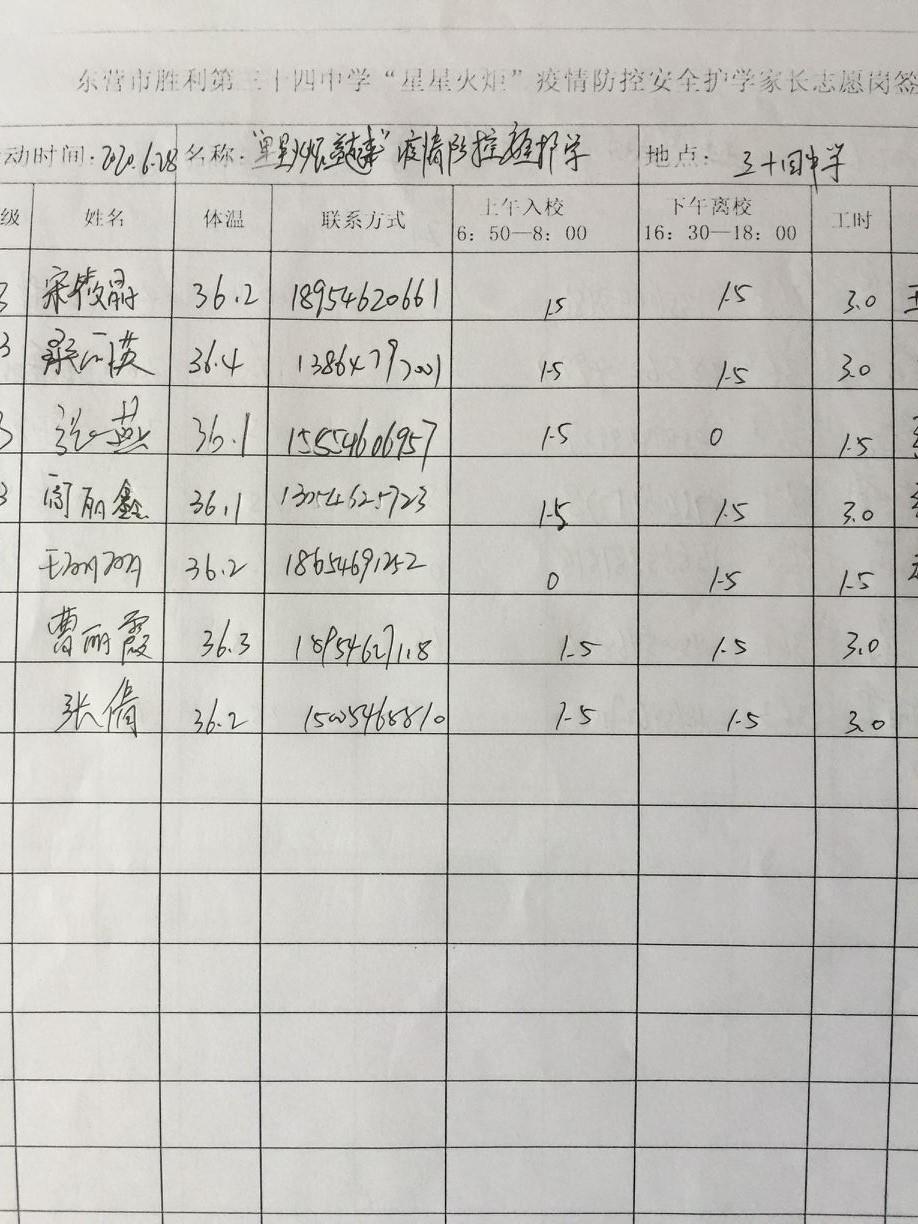 东营市胜利第三十四中学“星星火炬”疫情防控安全护学家长志愿岗签
动时间：2020.6.28 名称： 疫情防控 护学 地点：三十四中学
级 姓名 体温 联系方式 上午入校 6：50—8：00 下午离校 16：30—18：00 工时
3 36.2 18954620661 1.5 1.5 3.0 王
3 36.4 13864797001 1.5 1.5 3.0
3 36.1 15554606957 1.5 0 1.5
3 丽鑫 36.1 13054625723 1.5 1.5 3.0
王丽丽 36.2 18654691252 0 1.5 1.5
曹丽霞 36.3 1.5 1.5 3.0
张倩 36.2 1.5 1.5 3.0